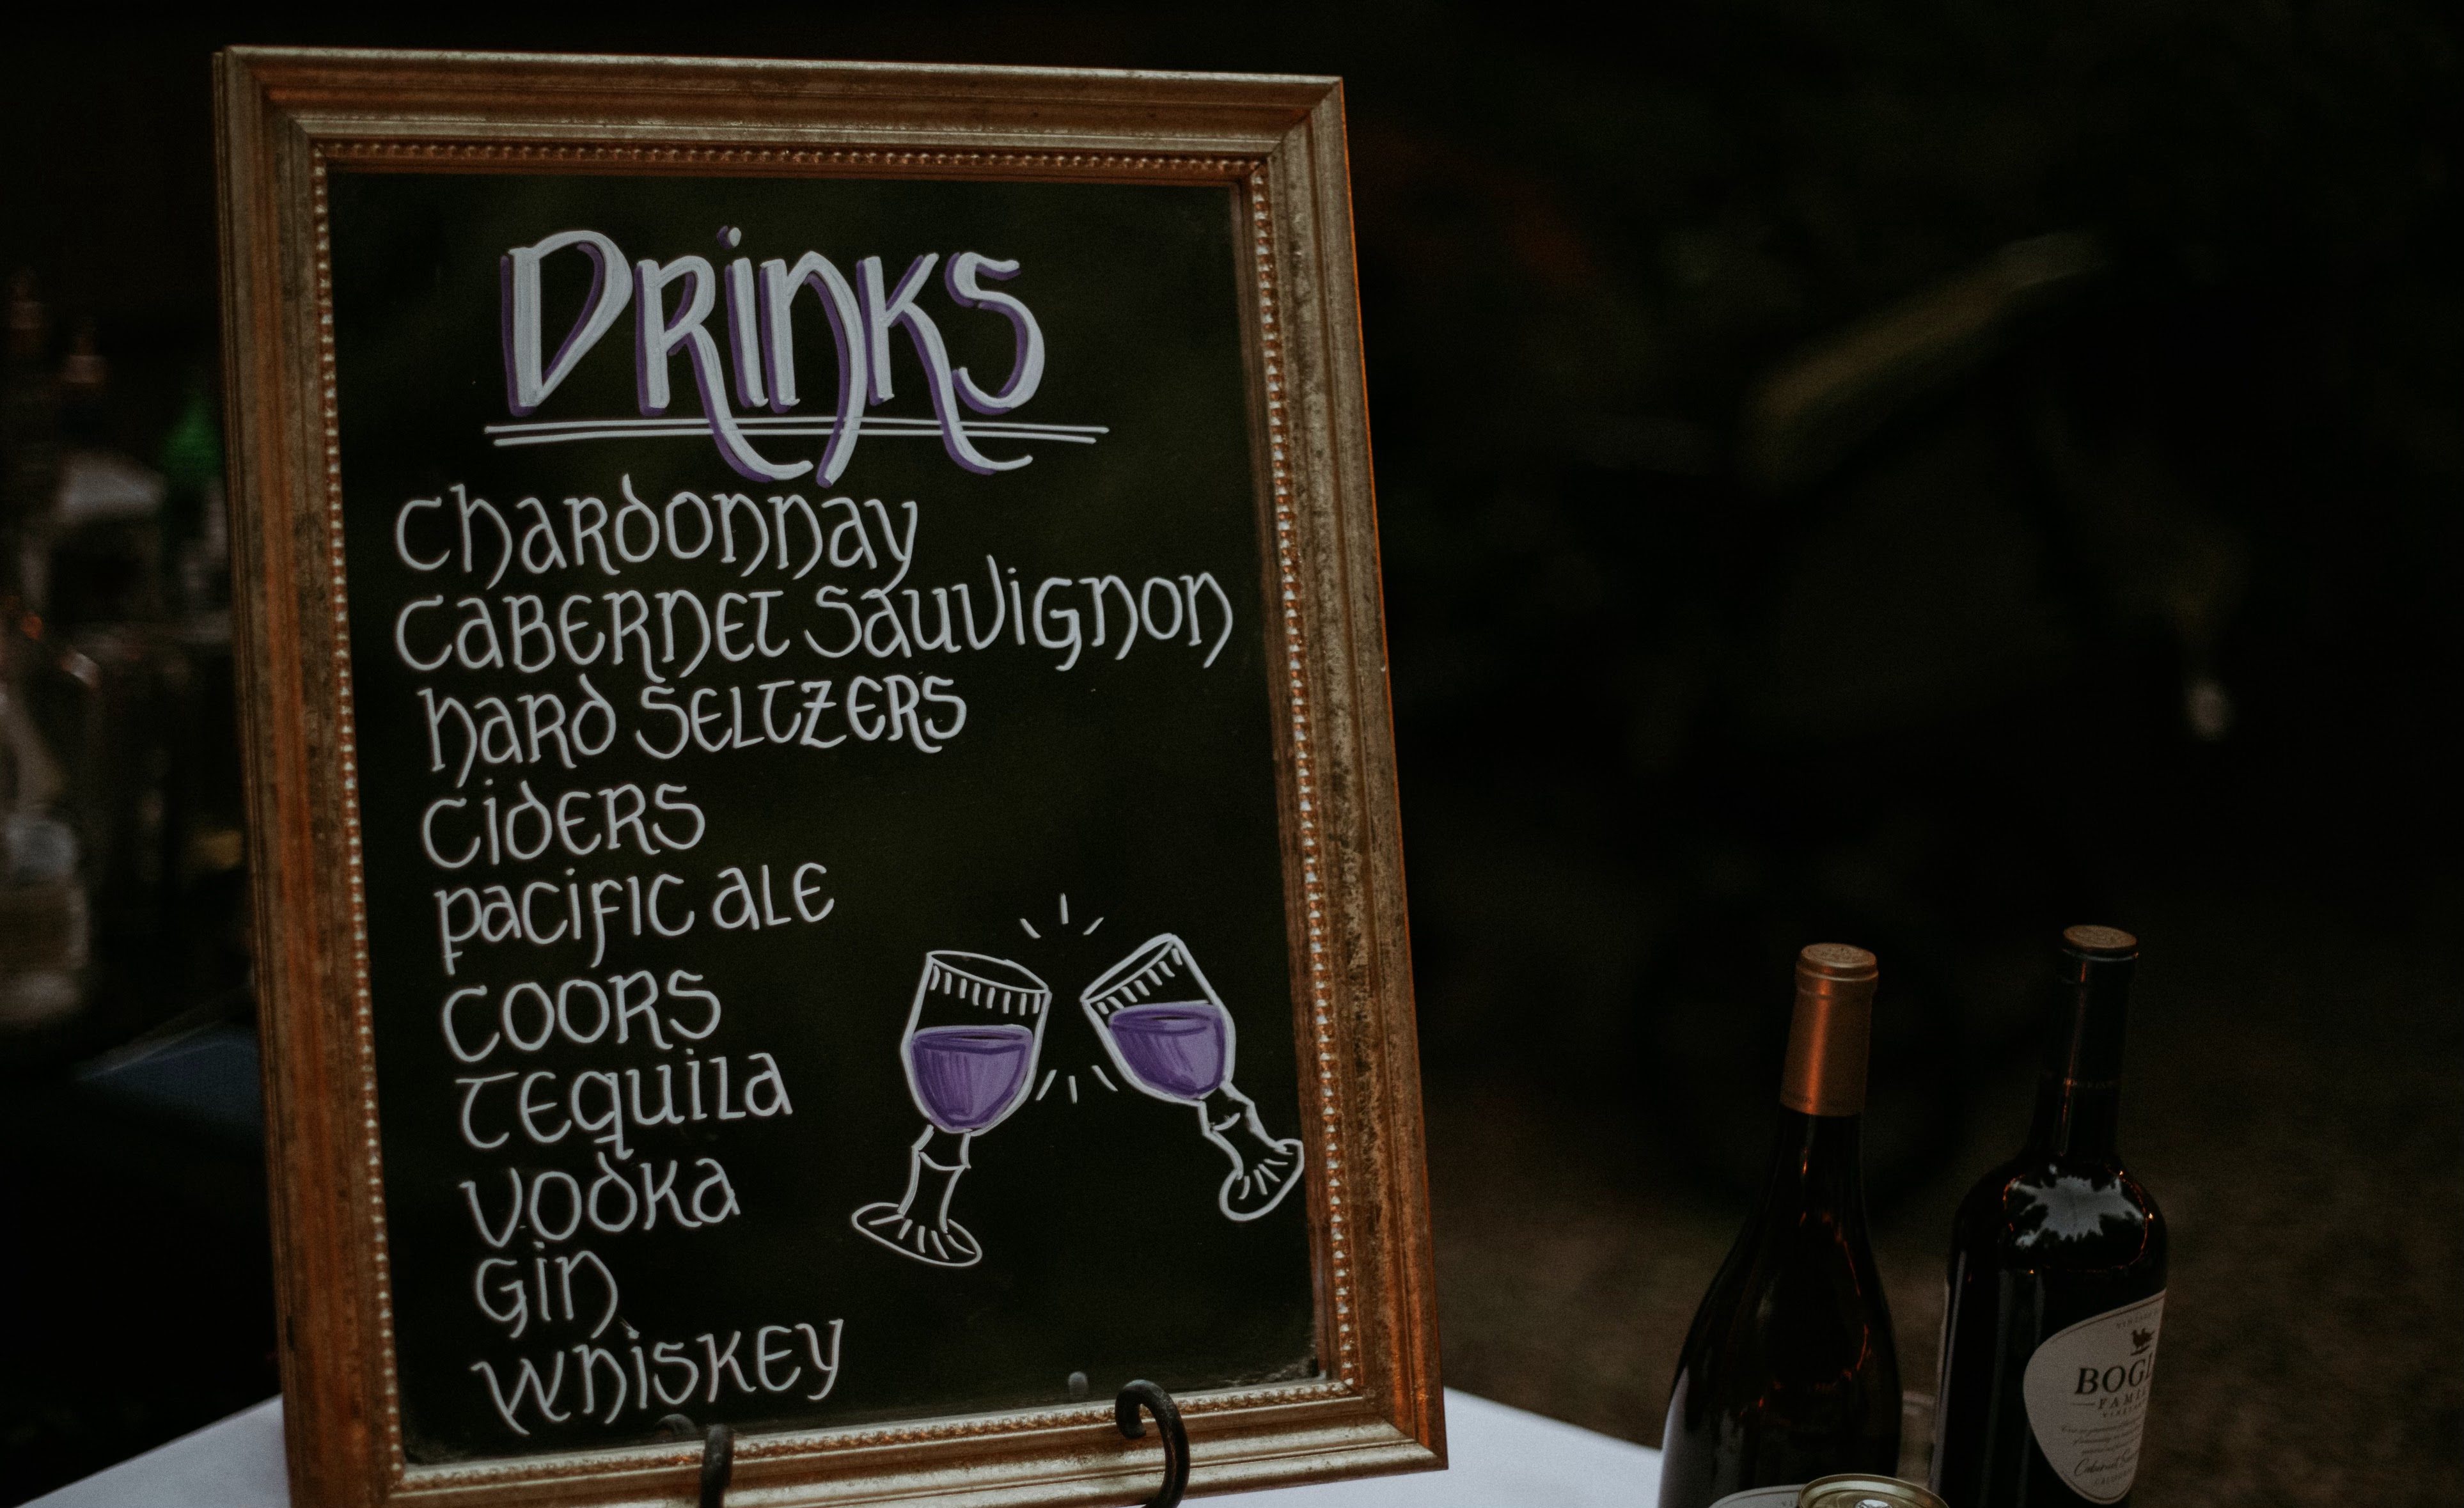 DRiNKS
Chardonnay
CABERNET SauVignon
hard SELTZERS
CidERS
Pacific aLE
COORS
TEquiLa
Vodka
Gin
WhiskEY
FAMILY
Cabernet